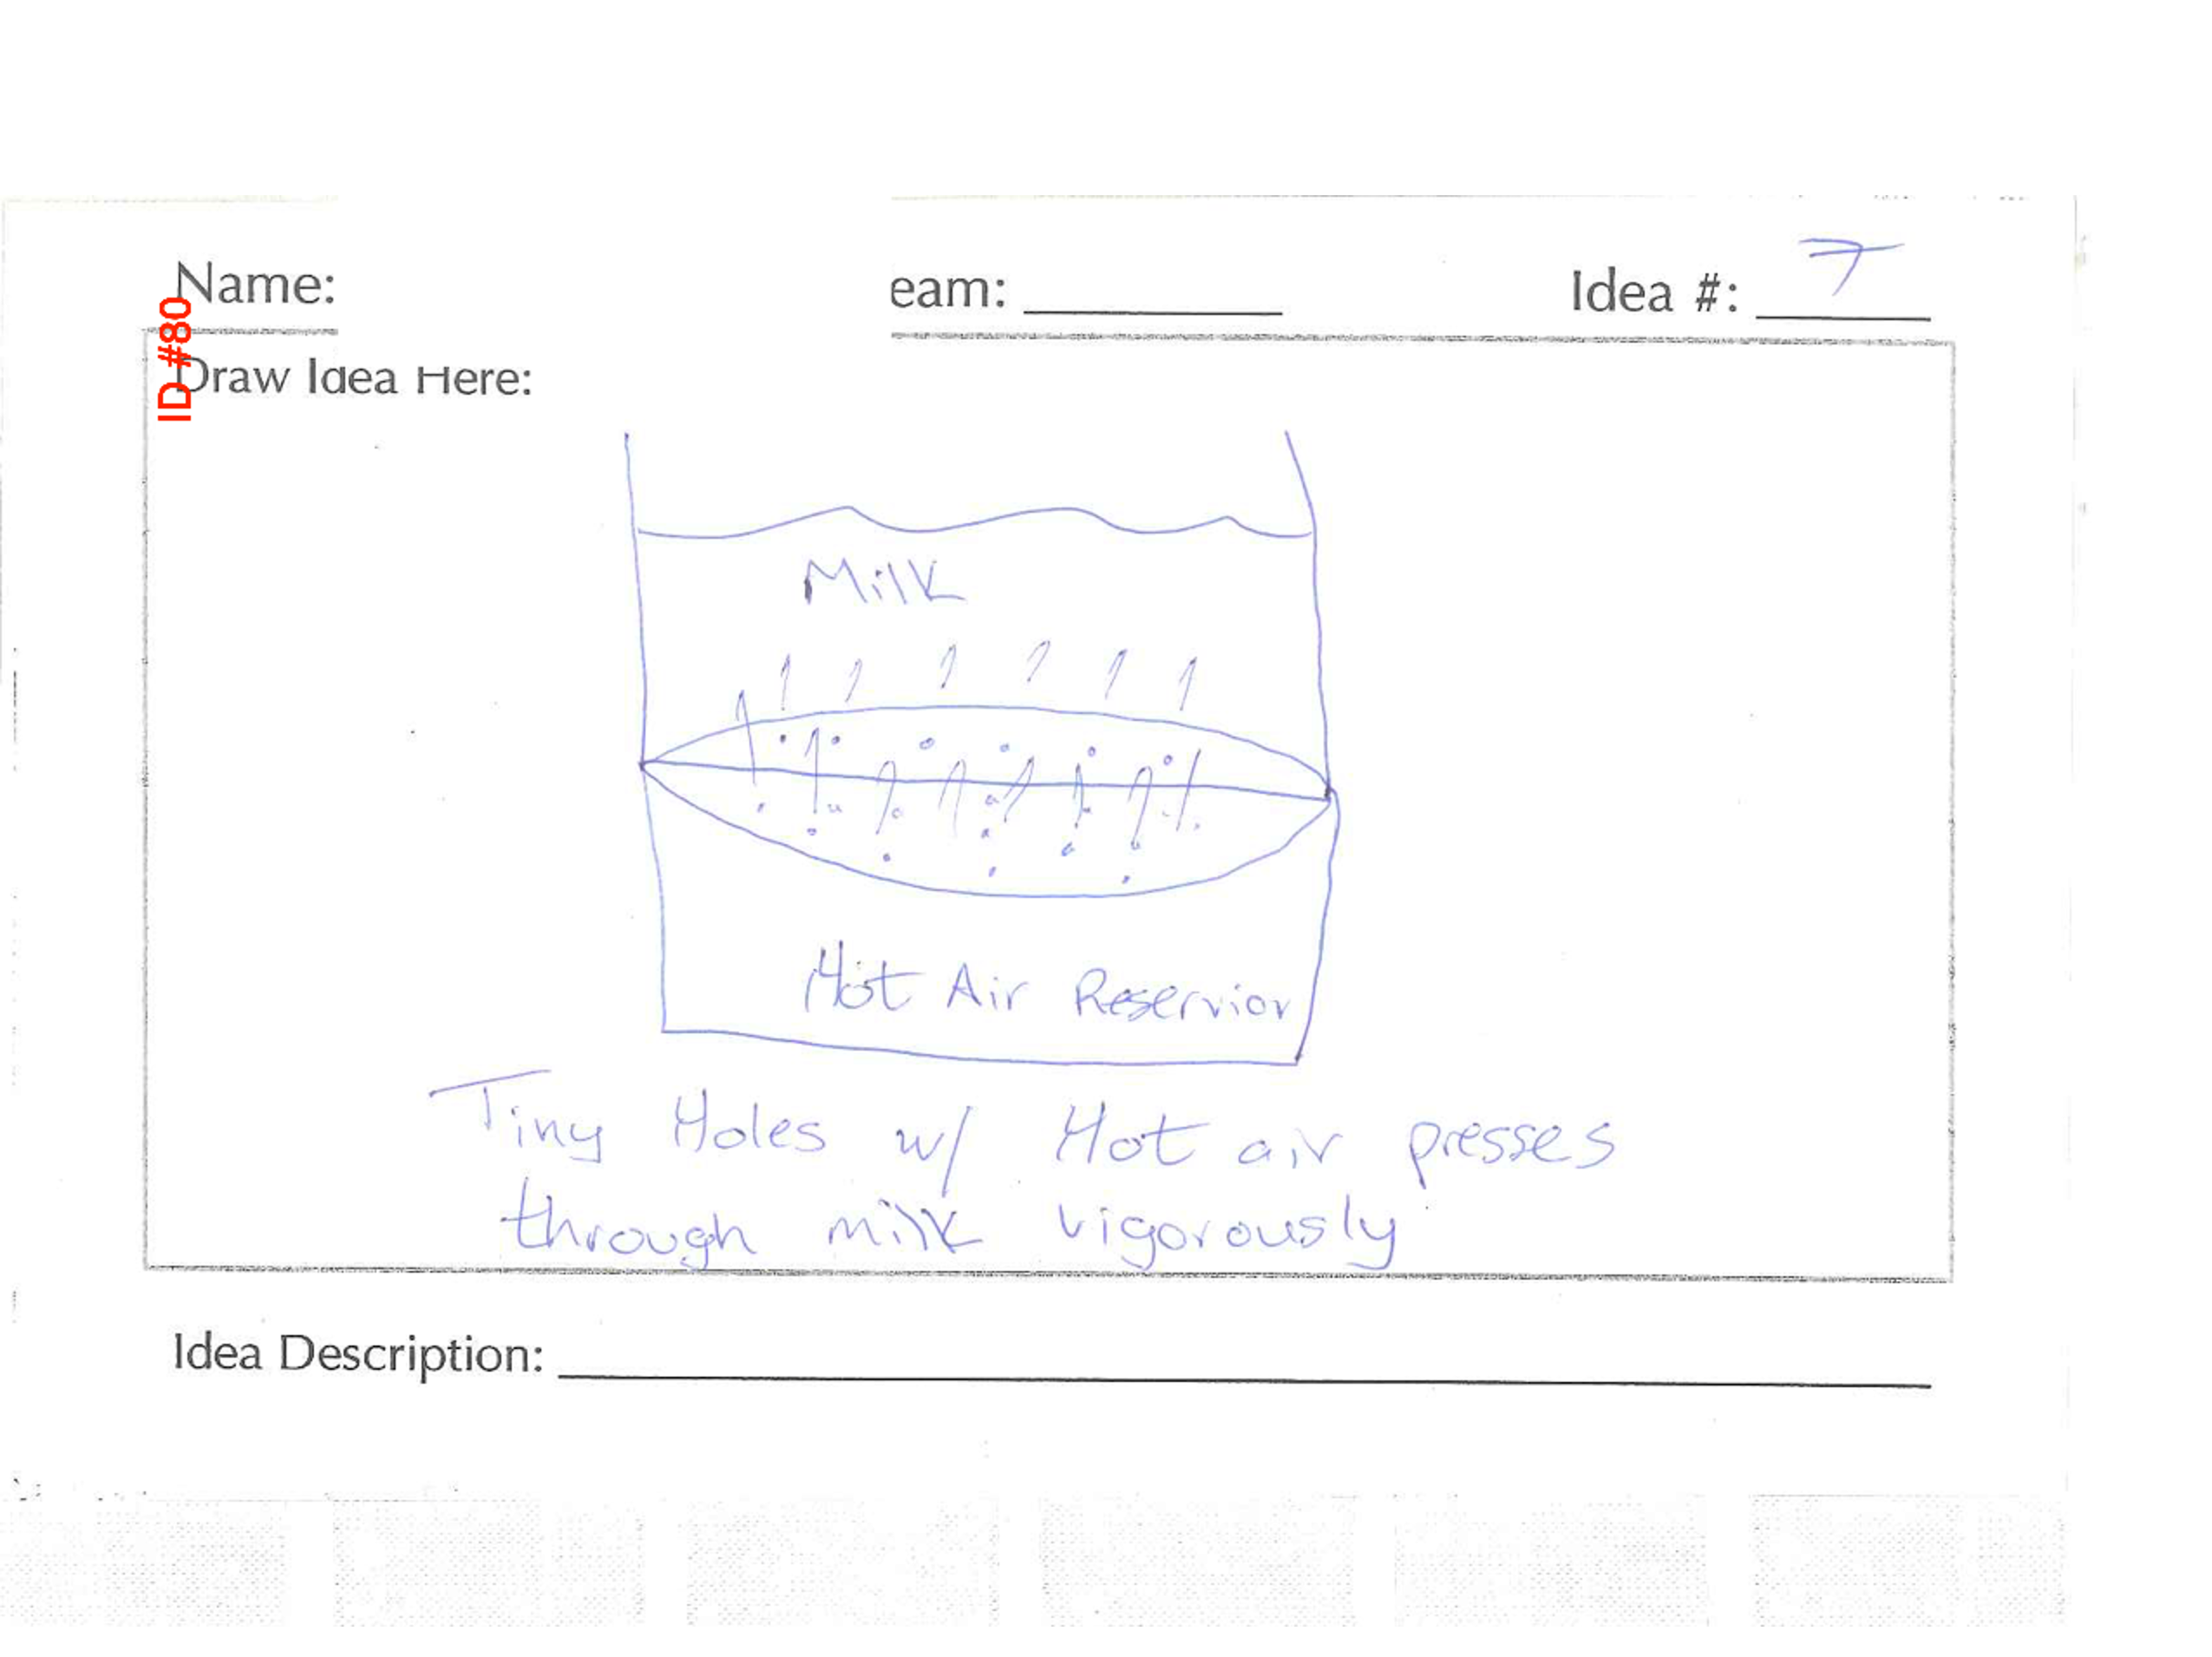 Name:
eam:
Idea #: 7
ID#80
Draw Idea Here:
Milk
Hot Air Reservior
Tiny Holes w/ Hot air presses
through milk vigorously
Idea Description: